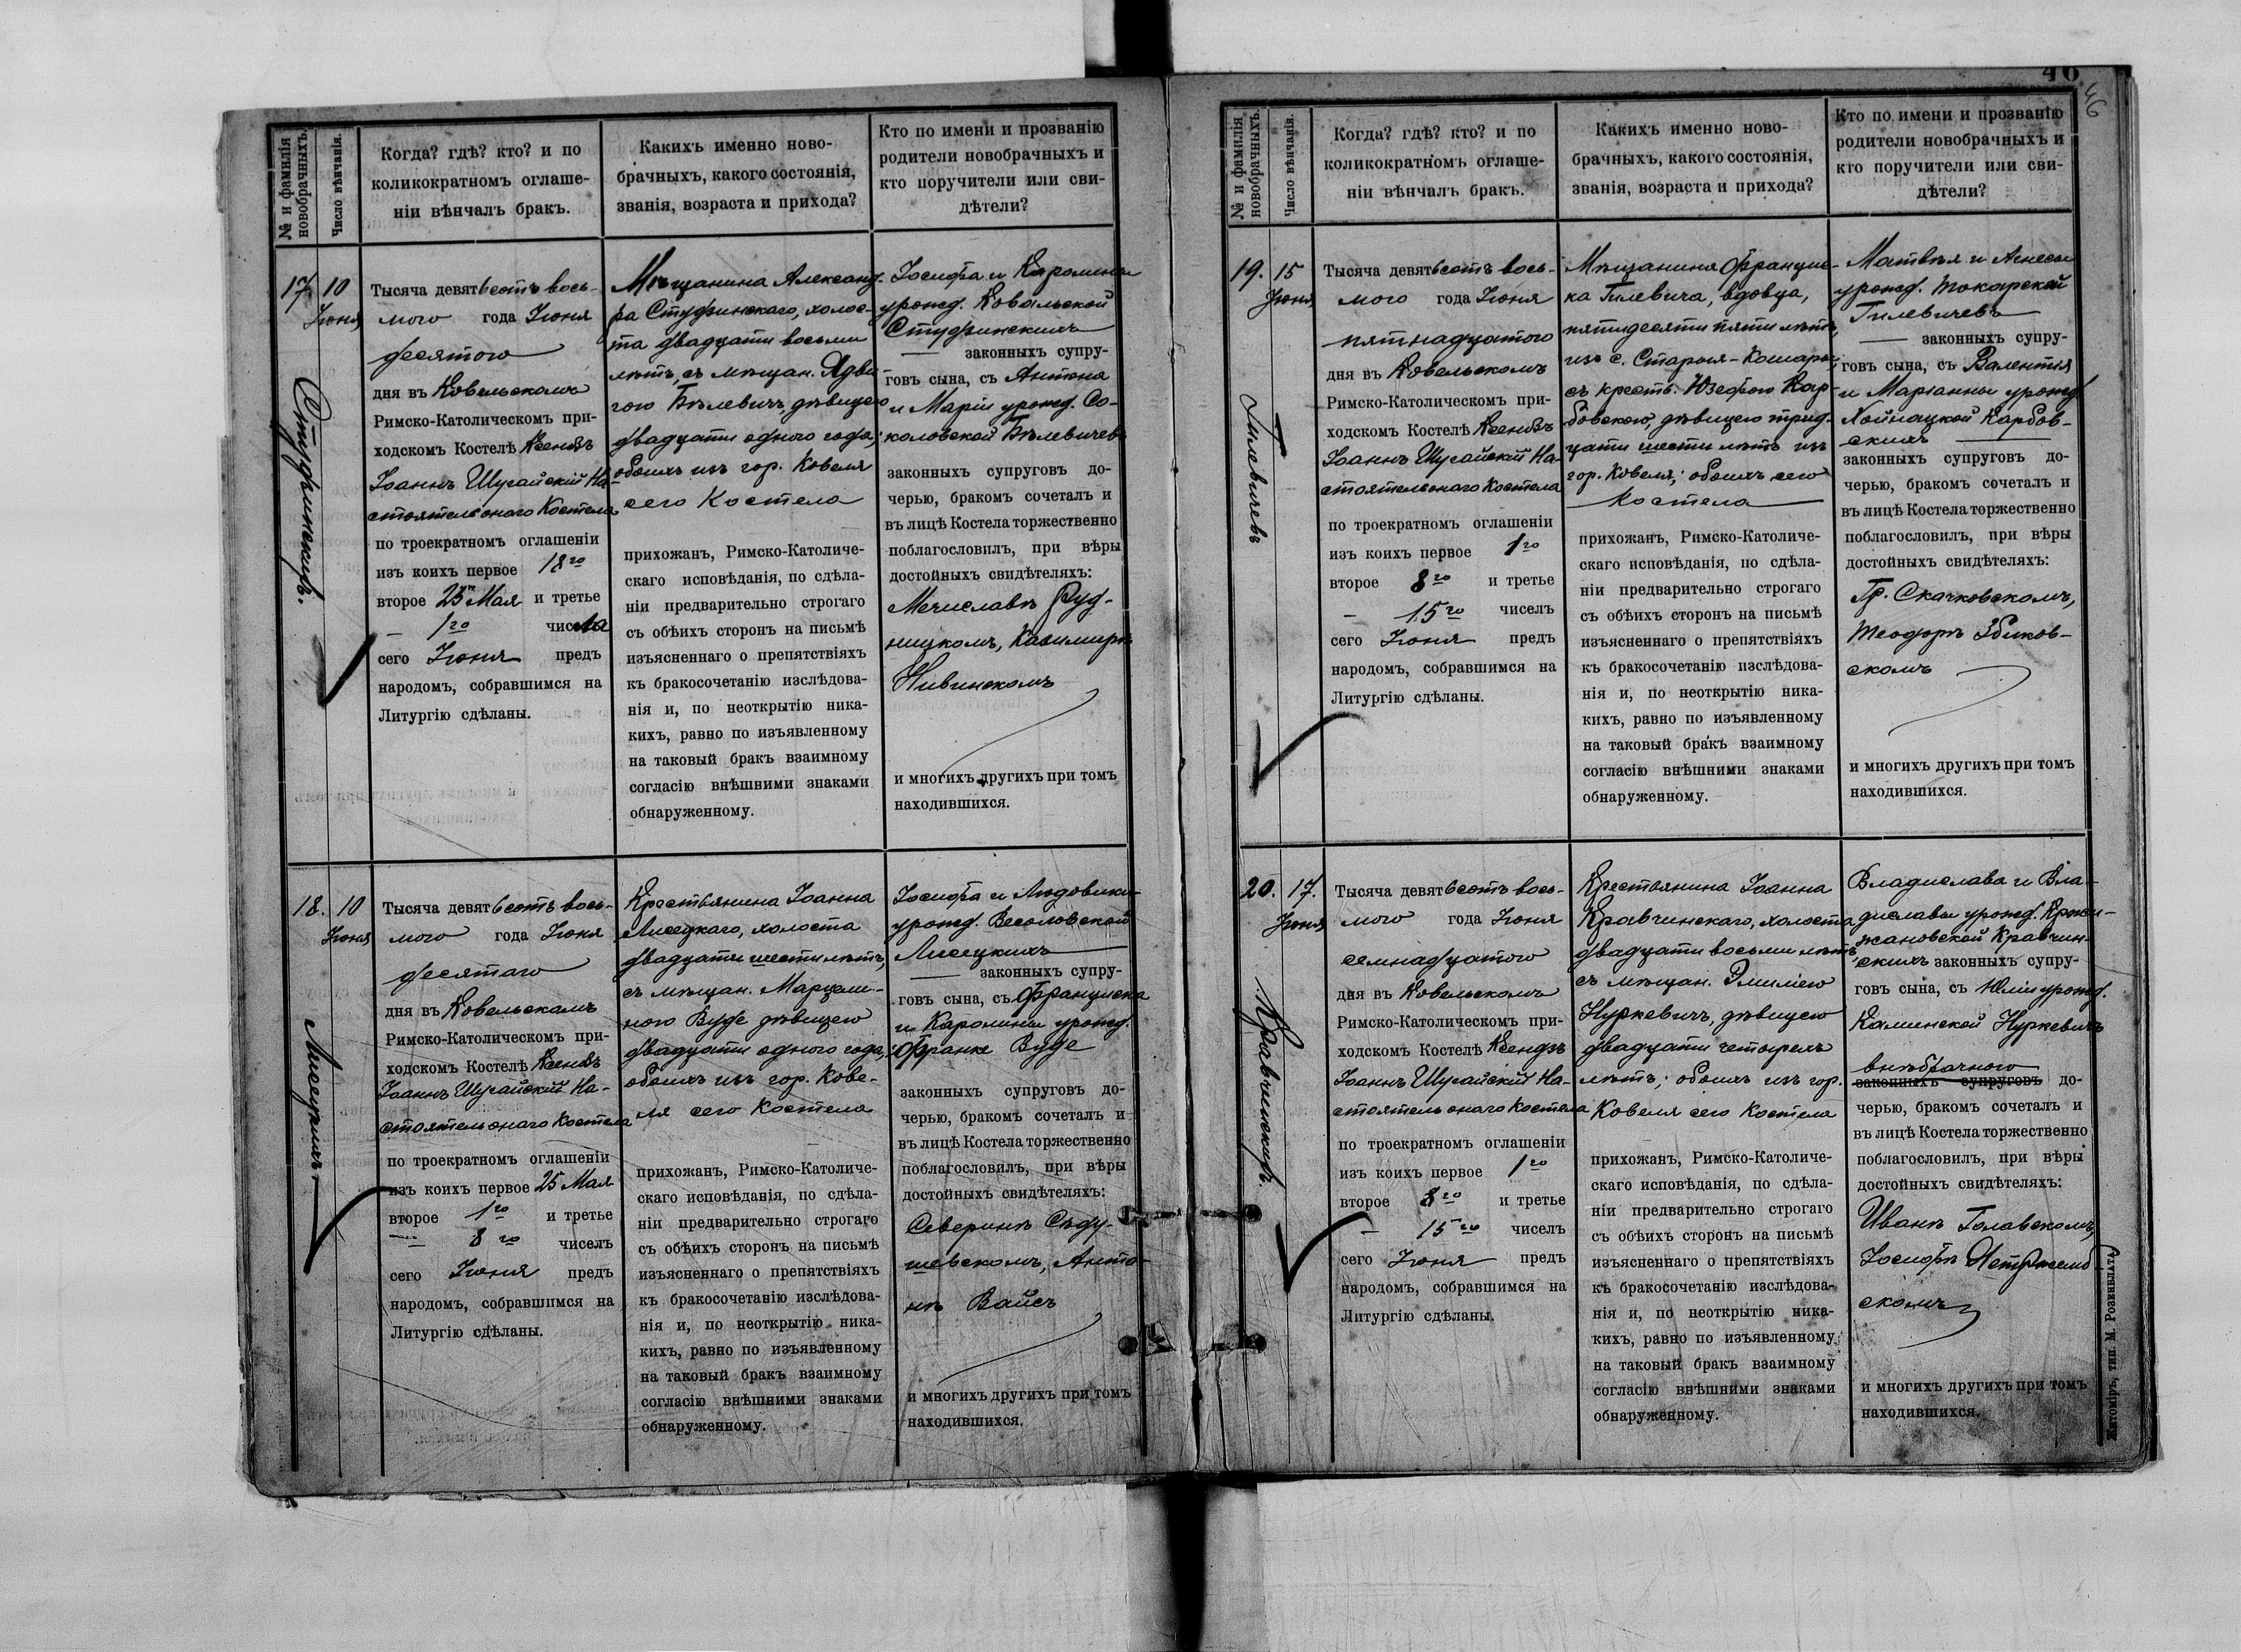 № и фамилія
новобрачныхъ.
Число вѣнчанія.
Когда? гдѣ? кто? и по
коликократномъ оглаше-
ніи вѣнчалъ бракъ.
Какихъ именно ново-
брачныхъ, какого состоянія,
званія, возраста и прихода?
Кто по имени и прозванію
родители новобрачныхъ и
кто поручители или сви-
дѣтели?
17. 10
Іюня
Студзинскихъ.
Тысяча девятьсотъ вось-
мого года Іюня
десятого
дня въ Ковельскомъ
Римско-Католическомъ при-
ходскомъ Костелѣ Ксендзъ
Іоаннъ Шугайскій На-
стоятель онаго Костела
по троекратномъ оглашеніи
изъ коихъ первое 18го
второе 25го Мая и третье
— 1го числа
сего Іюня предъ
народомъ, собравшимся на
Литургію сдѣланы.
Мѣщанина Александ-
ра Студзинскаго, холос-
та двадцати восьми
лѣтъ, съ мѣщан. Ядви-
гою Бѣлевичъ, дѣвицею
двадцати одного года;
обоихъ изъ гор. Ковеля
сего Костела
прихожанъ, Римско-Католиче-
скаго исповѣданія, по сдѣла-
ніи предварительно строгаго
съ обѣихъ сторонъ на письмѣ
изъясненнаго о препятствіяхъ
къ бракосочетанію изслѣдова-
нія и, по неоткрытію ника-
кихъ, равно по изъявленному
на таковый бракъ взаимному
согласію внѣшними знаками
обнаруженному.
Іосифа и Каролины
урожд. Ковальской
Студзинскихъ
— законныхъ супру-
говъ сына, съ Антона
и Маріи урожд. Со-
коловской Бѣлевичевъ
законныхъ супруговъ до-
черью, бракомъ сочеталъ и
въ лицѣ Костела торжественно
поблагословилъ, при вѣры
достойныхъ свидѣтеляхъ:
Мечиславѣ Руд-
ницкомъ, Казимирѣ
Нивинскомъ
и многихъ другихъ при томъ
находившихся.
18. 10
Іюня
Лисецкихъ
Тысяча девятьсотъ вось-
мого года Іюня
десятаго
дня въ Ковельскомъ
Римско-Католическомъ при-
ходскомъ Костелѣ Ксендзъ
Іоаннъ Шугайскій На-
стоятель онаго Костела
по троекратномъ оглашеніи
изъ коихъ первое 25 Мая
второе 1го и третье
— 8го чиселъ
сего Іюня предъ
народомъ, собравшимся на
Литургію сдѣланы.
Крестьянина Іоанна
Лисецкаго, холоста
двадцати шести лѣтъ,
съ мѣщан. Марцели-
ною Вуде дѣвицею
двадцати одного года,
обоихъ изъ гор. Кове-
ля сего Костела
прихожанъ, Римско-Католиче-
скаго исповѣданія, по сдѣла-
ніи предварительно строгаго
съ обѣихъ сторонъ на письмѣ
изъясненнаго о препятствіяхъ
къ бракосочетанію изслѣдова-
нія и, по неоткрытію ника-
кихъ, равно по изъявленному
на таковый бракъ взаимному
согласію внѣшними знаками
обнаруженному.
Іосифа и Людовики
урожд. Весоловской
Лисецкихъ
— законныхъ супру-
говъ сына, съ Франциска
и Каролины урожд.
Франке Вуде
законныхъ супруговъ до-
черью, бракомъ сочеталъ и
въ лицѣ Костела торжественно
поблагословилъ, при вѣры
достойныхъ свидѣтеляхъ:
Северинѣ Сѣду-
шевскомъ, Анто-
нѣ Вайсъ
и многихъ другихъ при томъ
находившихся.
46
46
№ и фамилія
новобрачныхъ.
Число вѣнчанія.
Когда? гдѣ? кто? и по
коликократномъ оглаше-
ніи вѣнчалъ бракъ.
Какихъ именно ново-
брачныхъ, какого состоянія,
званія, возраста и прихода?
Кто по имени и прозванію
родители новобрачныхъ и
кто поручители или сви-
дѣтели?
19. 15
Іюня
Гилевичевъ
Тысяча девятьсотъ вось-
мого года Іюня
пятнадцатого
дня въ Ковельскомъ
Римско-Католическомъ при-
ходскомъ Костелѣ Ксендзъ
Іоаннъ Шугайскій На-
стоятель онаго Костела
по троекратномъ оглашеніи
изъ коихъ первое 1го
второе 8го и третье
— 15го чиселъ
сего Іюня предъ
народомъ, собравшимся на
Литургію сдѣланы.
Мѣщанина Францис-
ка Гилевича, вдовца,
пятидесяти пяти лѣтъ,
изъ с. Старыя-Кошары,
съ кресть. Юзефою Кар-
бовскою, дѣвицею трид-
цати шести лѣтъ изъ
гор. Ковеля; обоихъ сего
Костела
прихожанъ, Римско-Католиче-
скаго исповѣданія, по сдѣла-
ніи предварительно строгаго
съ обѣихъ сторонъ на письмѣ
изъясненнаго о препятствіяхъ
къ бракосочетанію изслѣдова-
нія и, по неоткрытію ника-
кихъ, равно по изъявленному
на таковый бракъ взаимному
согласію внѣшними знаками
обнаруженному.
Матвѣя и Агнесы
урожд. Токарской
Гилевичевъ
— законныхъ супру-
говъ сына, съ Валентія
и Маріанны урожд.
Хойнацкой Карбов-
скихъ
законныхъ супруговъ до-
черью, бракомъ сочеталъ и
въ лицѣ Костела торжественно
поблагословилъ, при вѣры
достойныхъ свидѣтеляхъ:
Гр. Скачковскомъ,
Теодорѣ Збиков-
скомъ
и многихъ другихъ при томъ
находившихся.
20. 17.
Іюня
Кравчинскихъ.
Тысяча девятьсотъ вось-
мого года Іюня
семнадцатого
дня въ Ковельскомъ
Римско-Католическомъ при-
ходскомъ Костелѣ Ксендзъ
Іоаннъ Шугайскій На-
стоятель онаго Костела
по троекратномъ оглашеніи
изъ коихъ первое 1го
второе 8го и третье
— 15го чиселъ
сего Іюня предъ
народомъ, собравшимся на
Литургію сдѣланы.
Крестьянина Іоанна
Кравчинскаго, холоста
двадцати восьми лѣтъ,
съ мѣщан. Эмиліею
Нуркевичъ, дѣвицею
двадцати четырехъ
лѣтъ; обоихъ изъ гор.
Ковеля сего Костела
прихожанъ, Римско-Католиче-
скаго исповѣданія, по сдѣла-
ніи предварительно строгаго
съ обѣихъ сторонъ на письмѣ
изъясненнаго о препятствіяхъ
къ бракосочетанію изслѣдова-
нія и, по неоткрытію ника-
кихъ, равно по изъявленному
на таковый бракъ взаимному
согласію внѣшними знаками
обнаруженному.
Владислава и Вла-
диславы урожд. Кржи-
жановской Кравчин-
скихъ законныхъ супру-
говъ сына, съ Юліи урожд.
Каминской Нуркевичъ
внѣбрачного
законныхъ супруговъ до-
черью, бракомъ сочеталъ и
въ лицѣ Костела торжественно
поблагословилъ, при вѣры
достойныхъ свидѣтеляхъ:
Иванѣ Голавскомъ,
Іосифѣ
скомъ
и многихъ другихъ при томъ
находившихся.
Житоміръ, тип. М. Розенблата